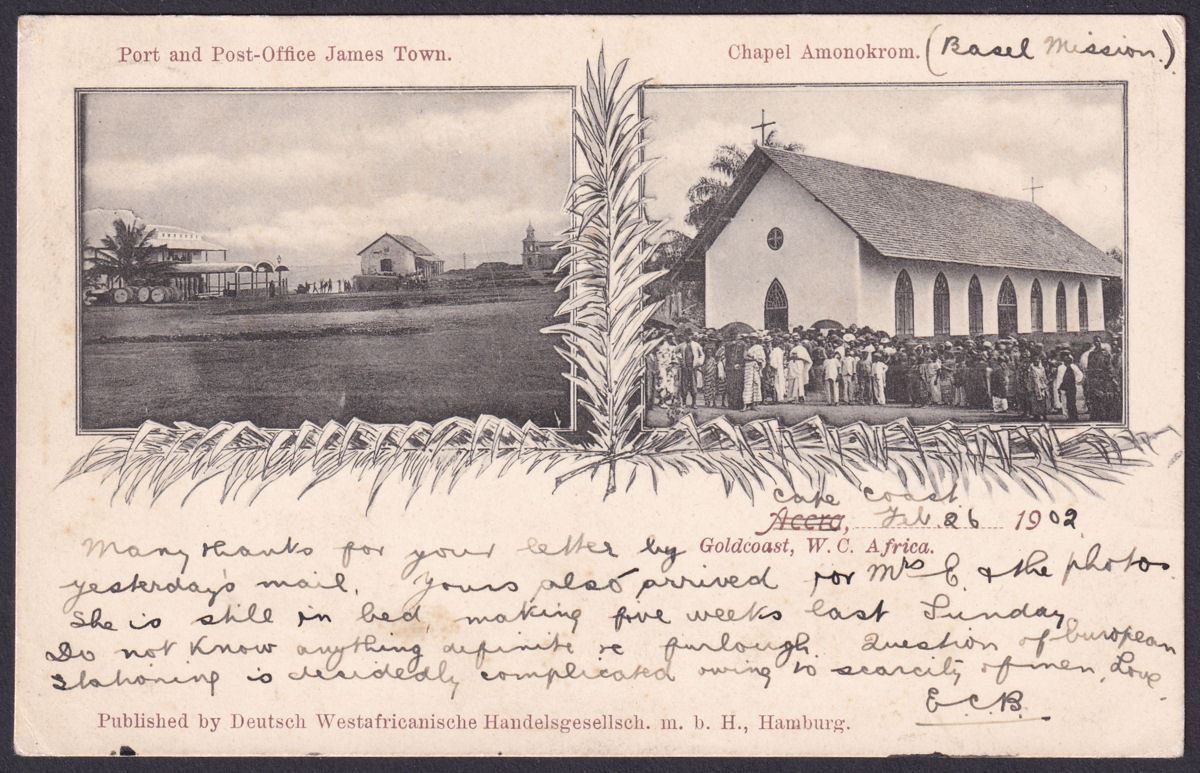 Port and Post-Office James Town.
Chapel Amonokrom. (Basel Mission.)
Cape Coast.
Accra, Feb 26 1902
Goldcoast, W. C. Africa.
Many thanks for your letter by
yesterday's mail. Yours also arrived for Mrs C & the photos.
She is still in bed, making five weeks last Sunday
Do not know anything definite re furlough. Question of European
stationing is decidedly complicated owing to scarcity of men, Love.
E.C.B.
Published by Deutsch Westafricanische Handelsgesellsch. m. b. H., Hamburg.